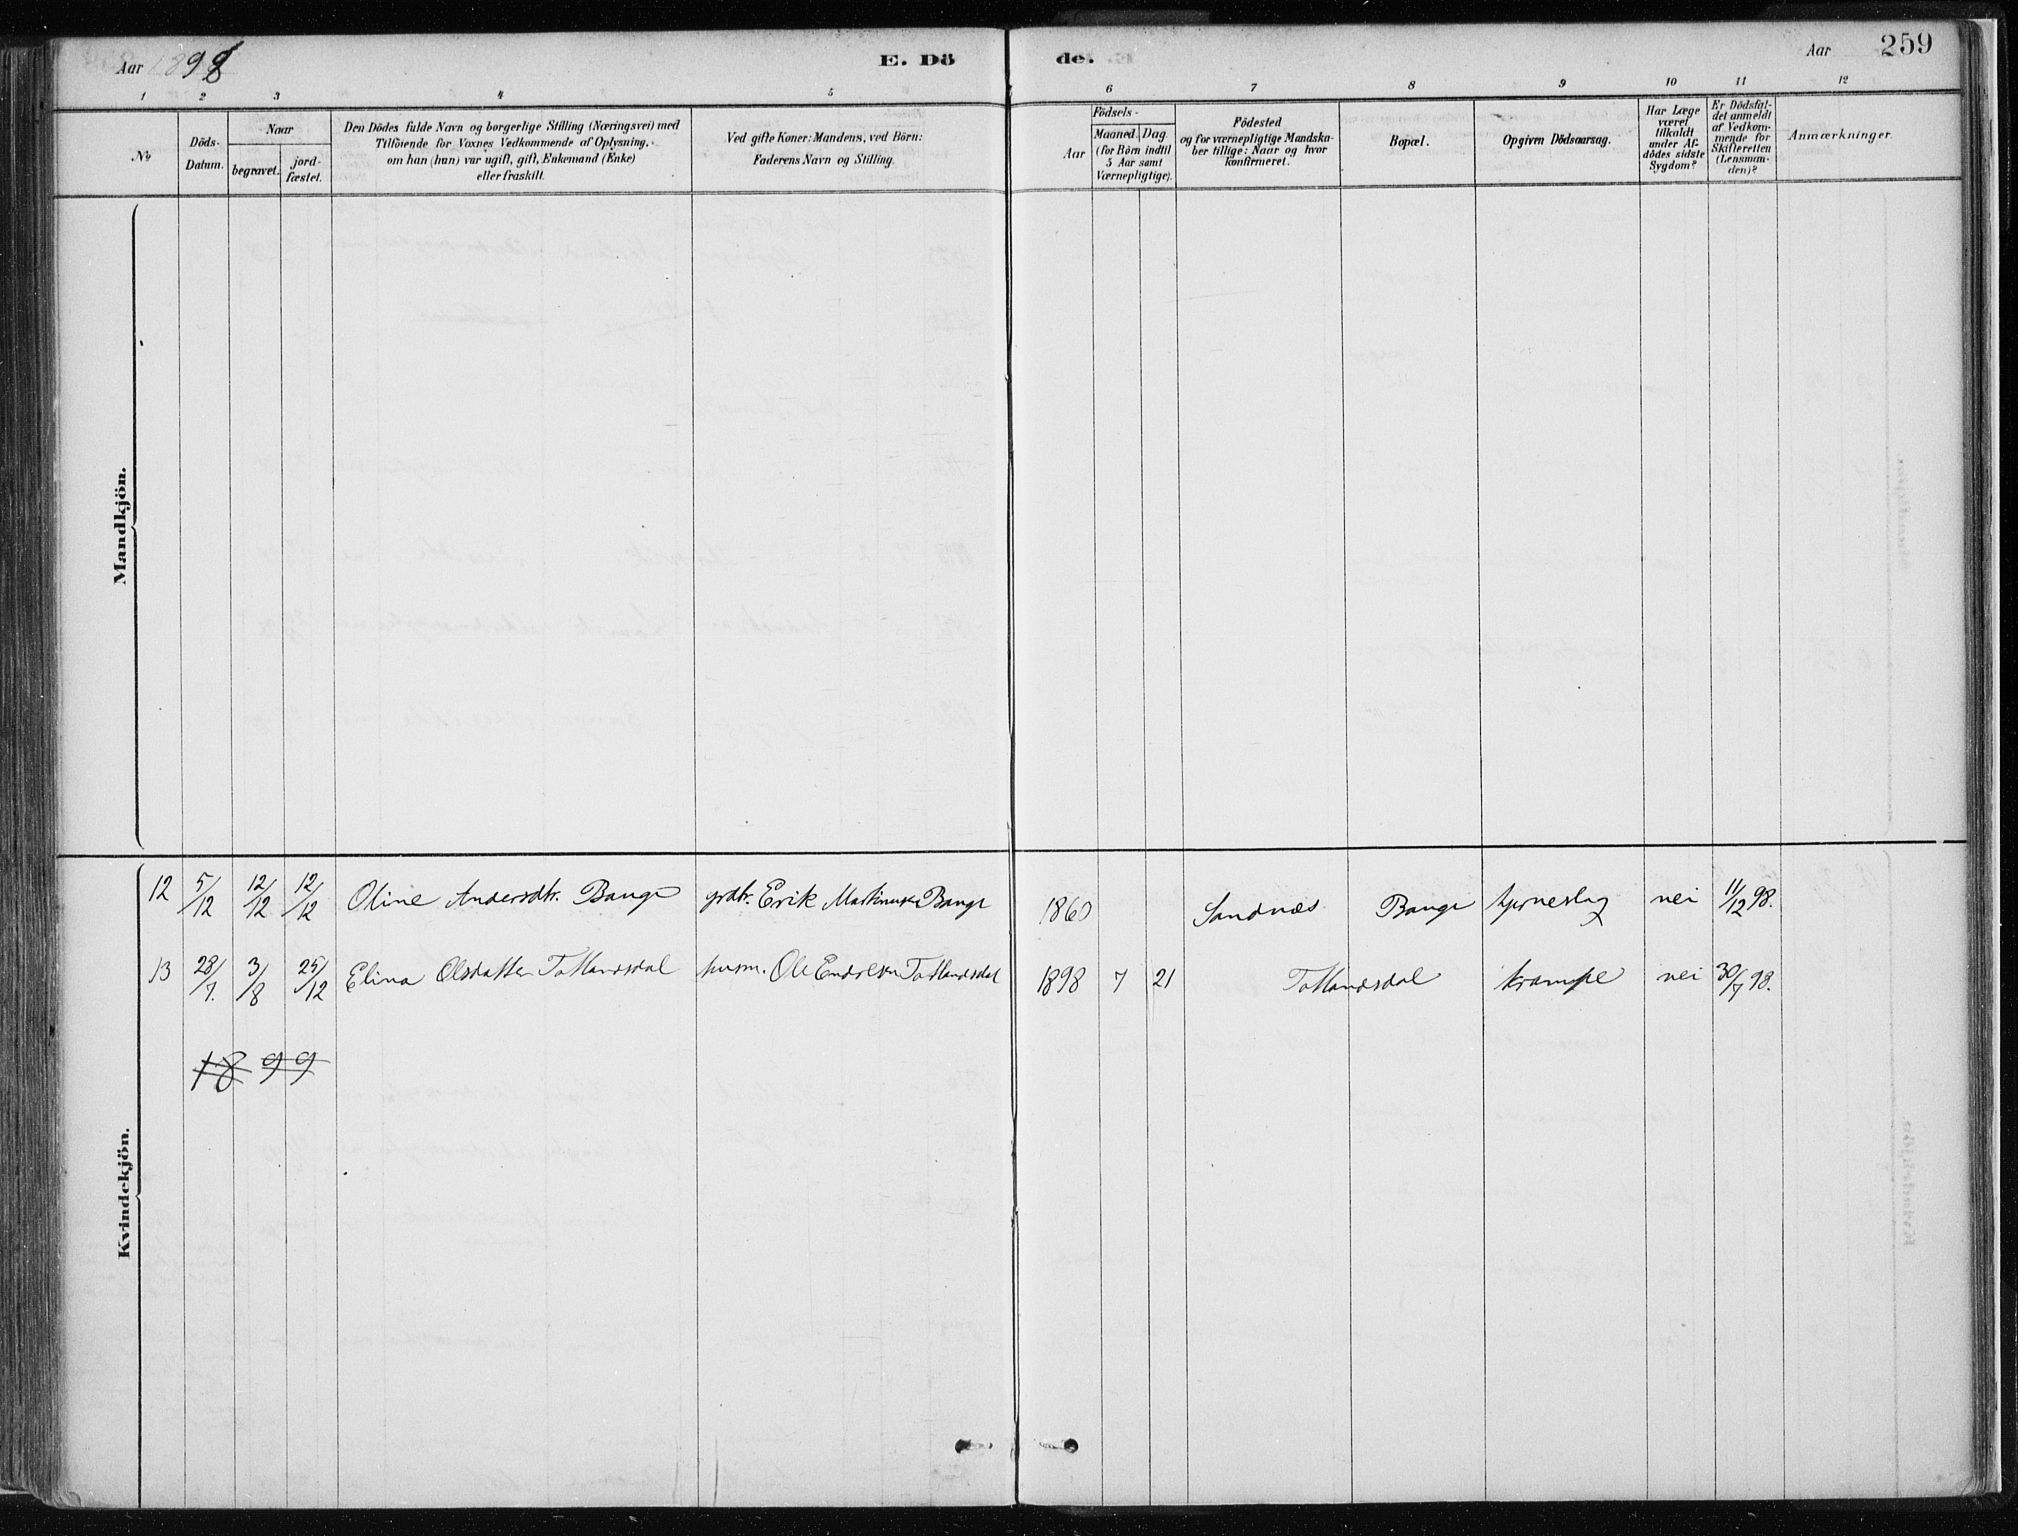 Aar 1898 E. Dö de. Aar 259
1 2 3 4 5 6 7 8 9 10 11 12
No
Döds-Datum.
Naar
begravet.
jord-fæstet.
Den Dödes fulde Navn og borgerlige Stilling (Næringsvei) med
Tilföiende for Voxnes Vedkommende af Oplysning,
om han (hun) var ugift, gift, Enkemand (Enke)
eller fraskilt.
Ved gifte Koner: Mandens, ved Börn:
Faderens Navn og Stilling.
Födsels-
Aar
Maaned. Dag
(for Börn indtil
5 Aar samt
Værnepligtige).
Födested
og for værnepligtige Mandska-
ber tillige: Naar og hvor
konfirmeret.
Bopæl.
Opgiven Dödsaarsag.
Har Læge
været
tilkaldt
under Af-
dödes sidste
Sygdom?
Er Dödsfal-
det anmeldt
af Vedkom-
mende for
Skifteretten
(Lensman-
den)?
Anmærkninger.
Mandkjön.
12 5/12 12/12 12/12 Oline Andersdtr. Bauge grdbr. Erik Martinusen Bauge 1860 Sandnæs Bauge hjerneslag nei 11/12 98.
13 28/7. 3/8 25/12 Elina Olsdatter Totlandsdal husm. Ole Endresen Totlandsdal 1898 7 21 Totlandsdal krampe nei 30/7 98.
1899
Kvindekjön.